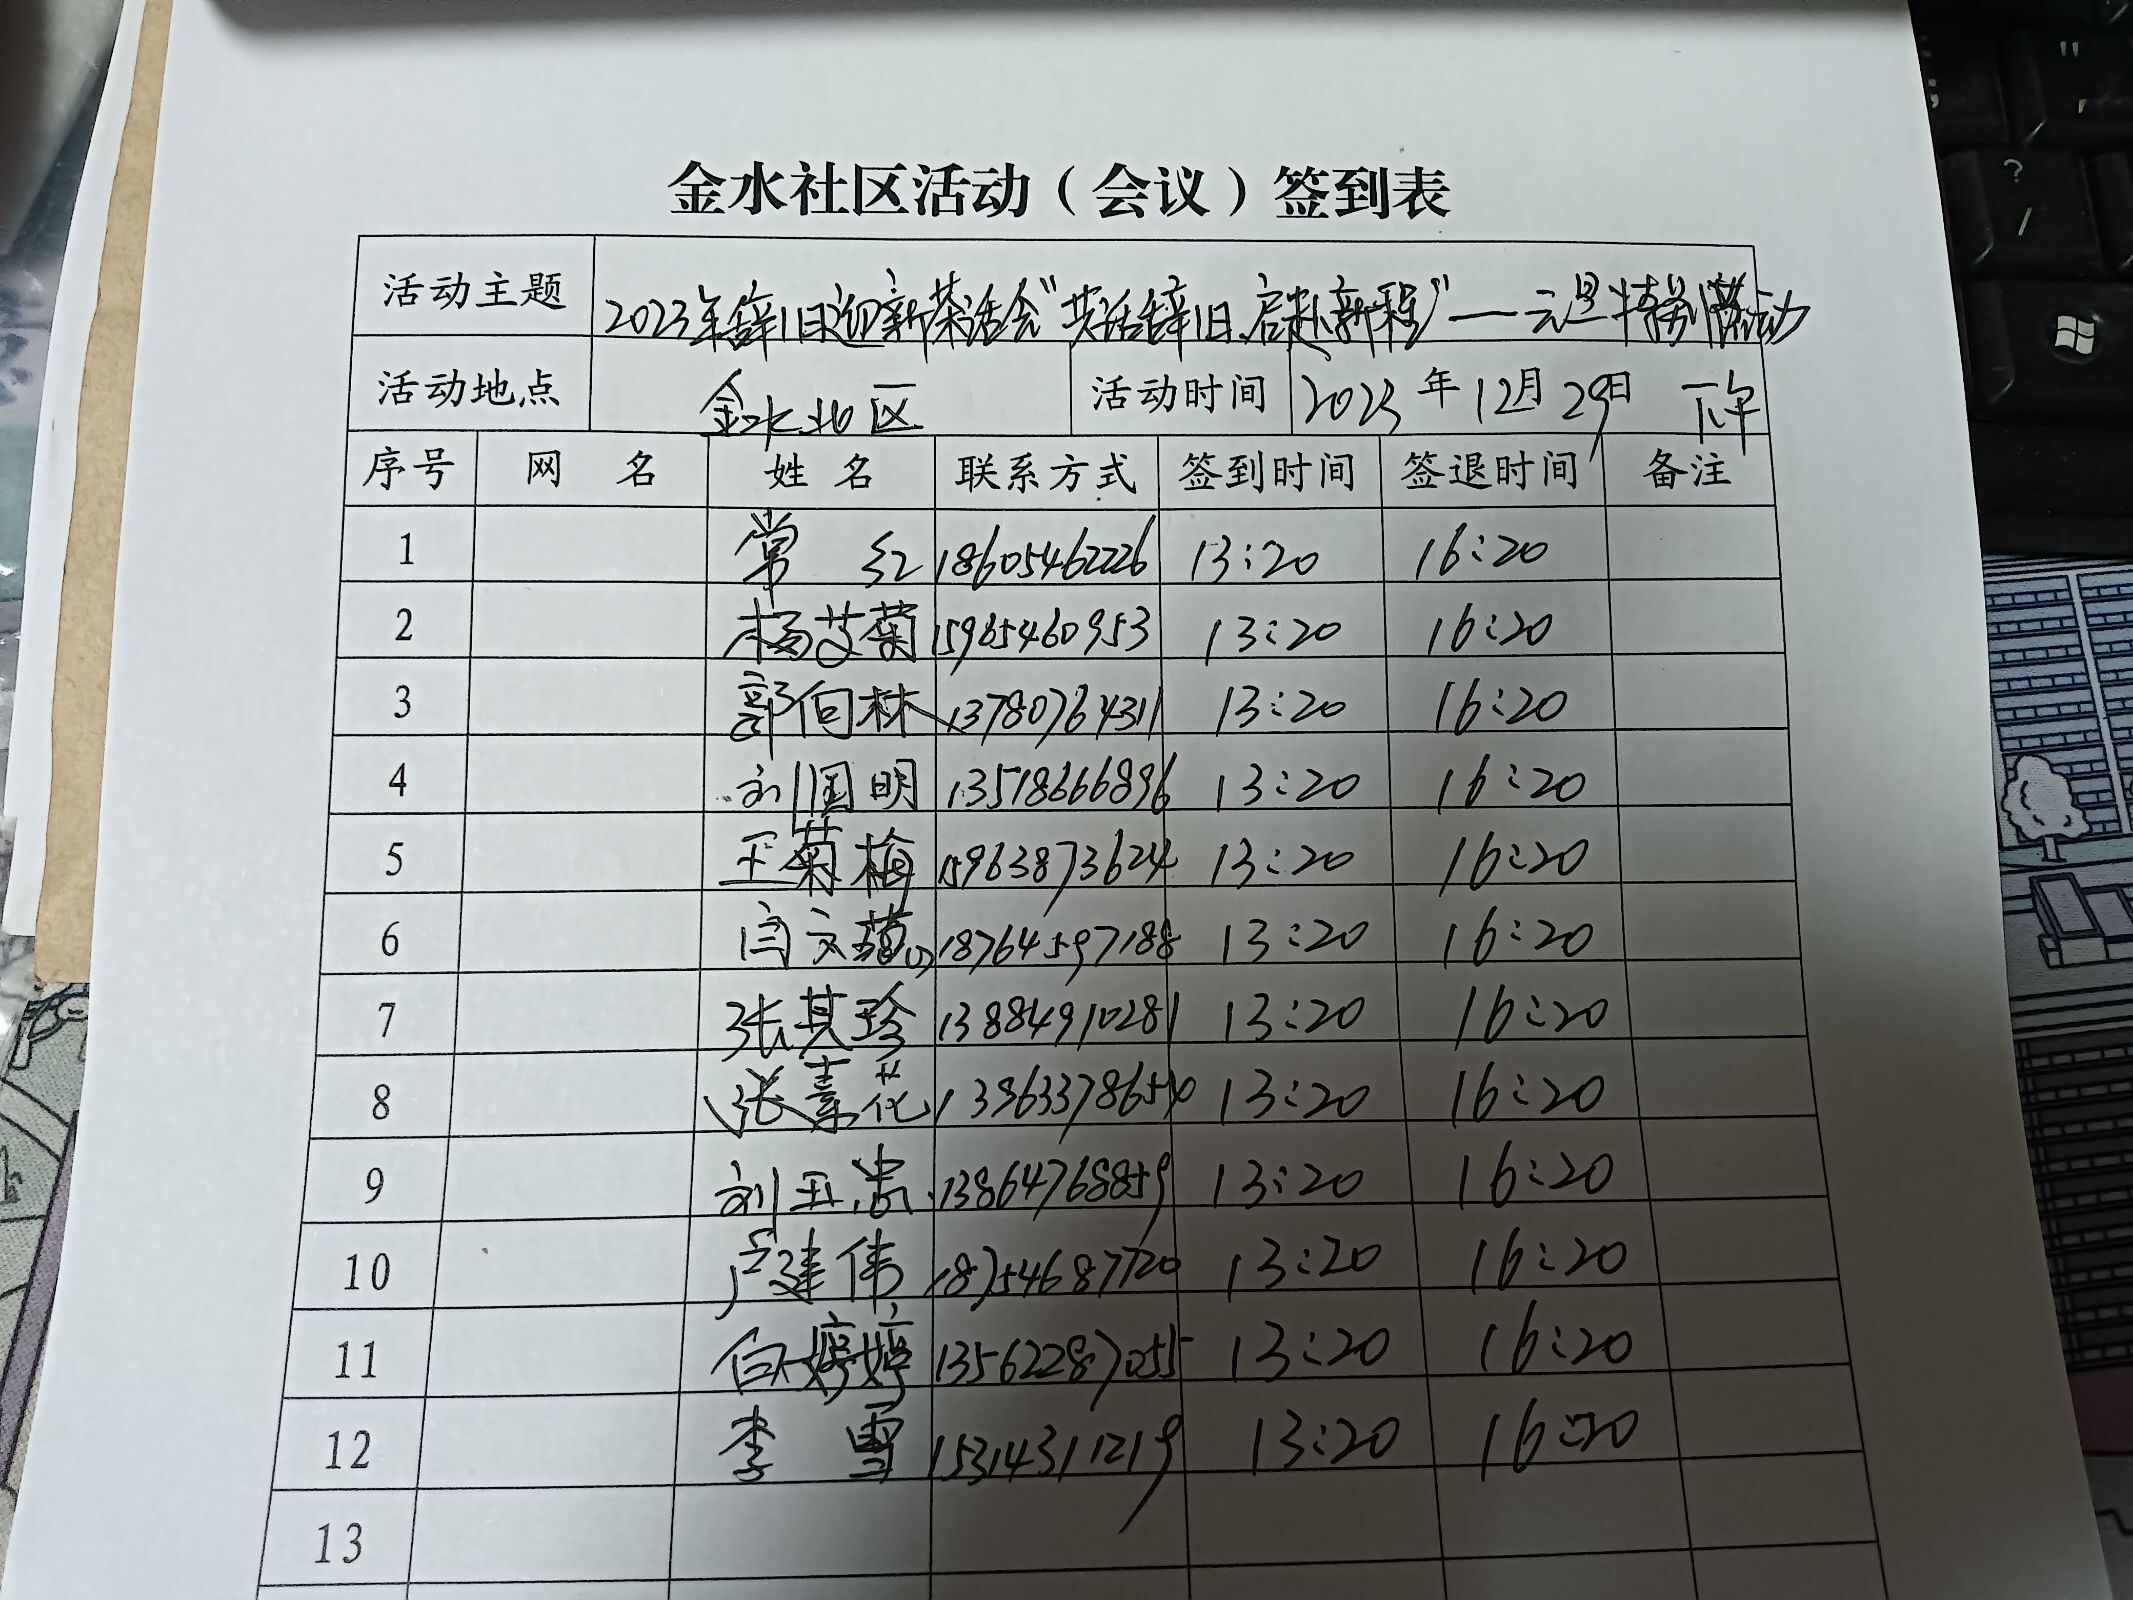 金水社区活动（会议）签到表
活动主题 2023年辞旧迎新茶话会“共话辞旧、启赴新程”——
活动地点 金水北区 活动时间 2023年12月29日 下午
序号 网 名 姓 名 联系方式 签到时间 签退时间 备注
1 常 红 18605462226 13:20 16:20
2 杨艾菊 15965460953 13:20 16:20
3 郭向林 13780764311 13:20 16:20
4 刘国明 13518666896 13:20 16:20
5 王菊梅 15963873624 13:20 16:20
6 闫文蕴 18764597188 13:20 16:20
7 张其珍 13884910281 13:20 16:20
8 张素花 13:20 16:20
9 刘玉忠 13864768859 13:20 16:20
10 卢建伟 18754687720 13:20 16:20
11 白婷婷 13562287055 13:20 16:20
12 李 雪 15314311219 13:20 16:20
13